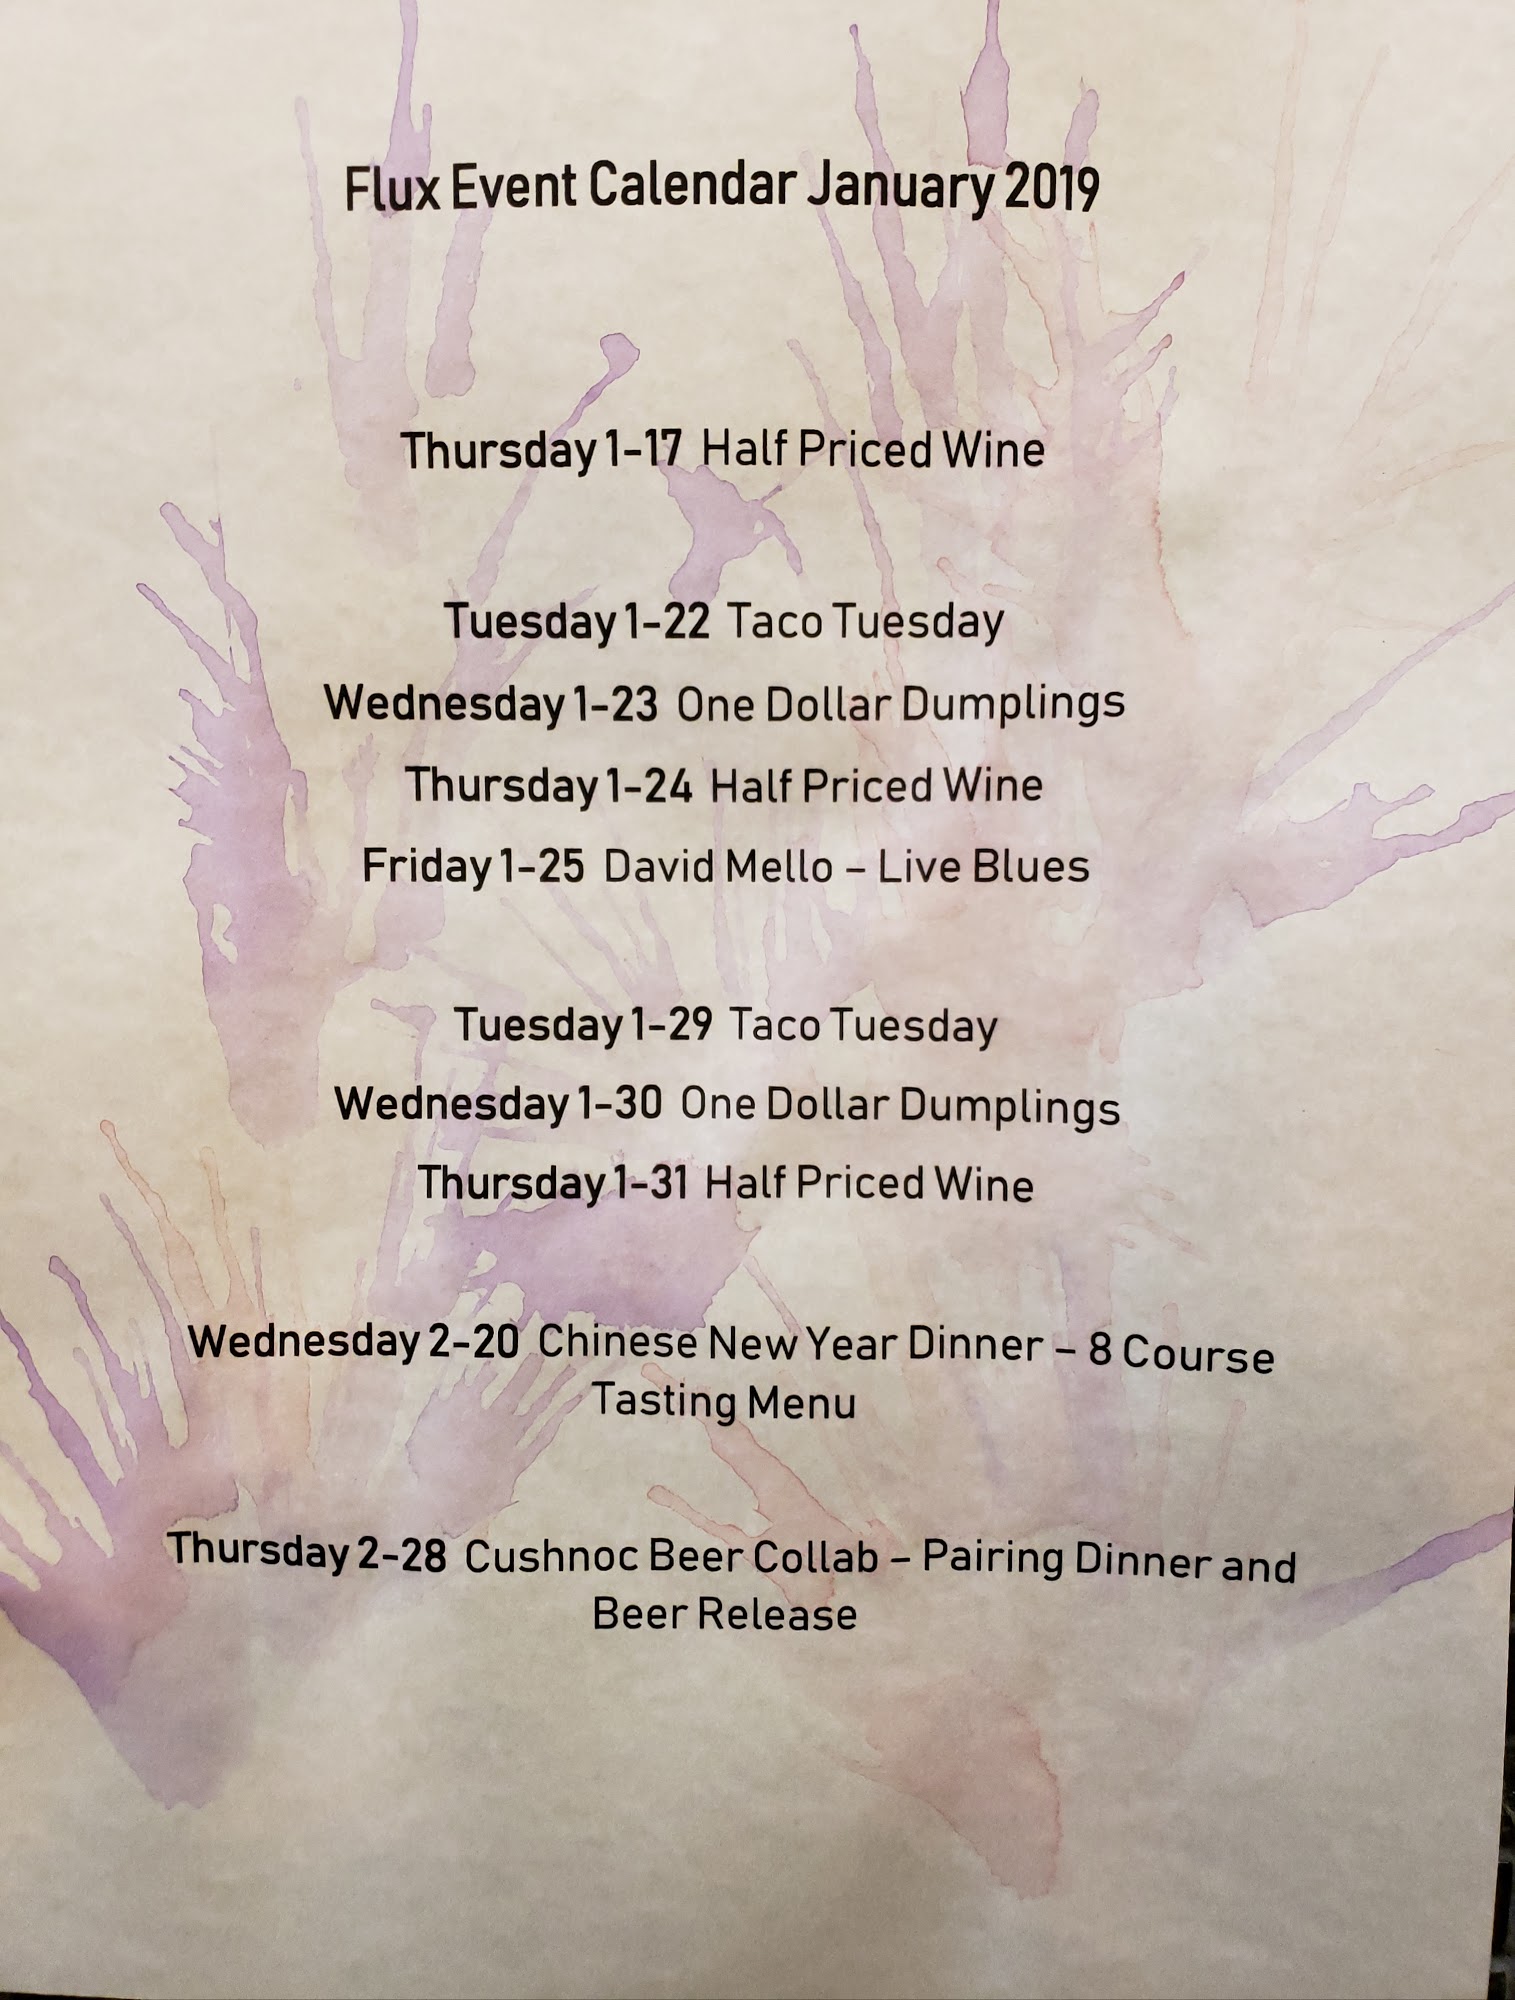 Flux Event Calendar January 2019
Thursday 1-17 Half Priced Wine
Tuesday 1-22 Taco Tuesday
Wednesday 1-23 One Dollar Dumplings
Thursday 1-24 Half Priced Wine
Friday 1-25 David Mello – Live Blues
Tuesday 1-29 Taco Tuesday
Wednesday 1-30 One Dollar Dumplings
Thursday 1-31 Half Priced Wine
Wednesday 2-20 Chinese New Year Dinner – 8 Course
Tasting Menu
Thursday 2-28 Cushnoc Beer Collab – Pairing Dinner and
Beer Release